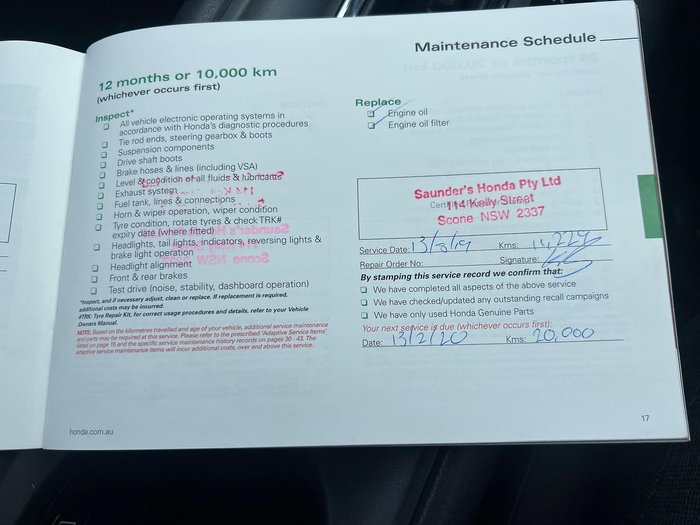 Maintenance Schedule
12 months or 10,000 km
(whichever occurs first)
Inspect*
All vehicle electronic operating systems in
accordance with Honda's diagnostic procedures
Tie rod ends, steering gearbox & boots
Suspension components
Drive shaft boots
Brake hoses & lines (including VSA)
Level & condition of all fluids & lubricants
Exhaust system
Fuel tank, lines & connections
Horn & wiper operation, wiper condition
Tyre condition, rotate tyres & check TRK#
expiry date (where fitted)
Headlights, tail lights, indicators, reversing lights &
brake light operation
Headlight alignment
Front & rear brakes
Test drive (noise, stability, dashboard operation)
*Inspect, and if necessary adjust, clean or replace. If replacement is required,
additional costs may be incurred.
#TRK. Tyre Repair Kit, for correct usage procedures and details, refer to your Vehicle
Owners Manual.
NOTE: Based on the kilometres travelled and age of your vehicle, additional service maintenance
and parts may be required at this service. Please refer to the prescribed 'Adaptive Service Items'
listed on page 15 and the specific service maintenance history records on pages 30 - 43. The
adaptive service maintenance items will incur additional costs, over and above this service.
honda.com.au
Replace
Engine oil
Engine oil filter
Saunder's Honda Pty Ltd
114 Kelly Street
Scone NSW 2337
Service Date: 13/8/19 Kms:
Repair Order No: Signature:
By stamping this service record we confirm that:
We have completed all aspects of the above service
We have checked/updated any outstanding recall campaigns
We have only used Honda Genuine Parts
Your next service is due (whichever occurs first):
Date: 13/2/20 Kms: 20,000
17